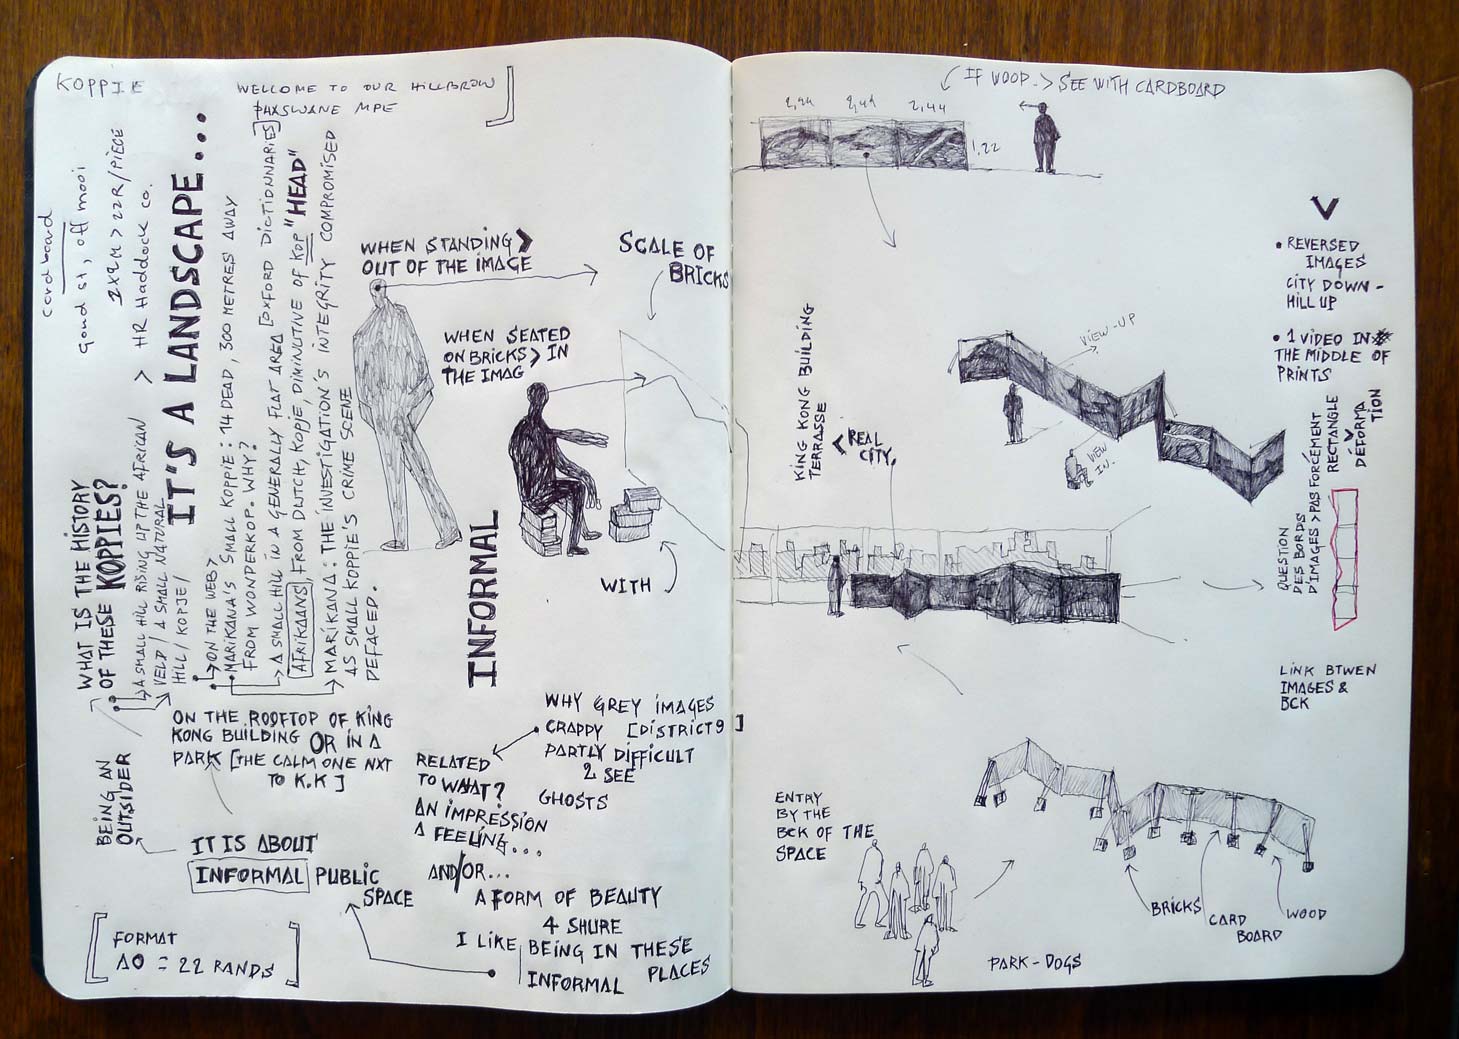 KOPPIE
WELLCOME TO OUR HILLBROW
PHASWANE MPE
cardboard
Goud st, off mooi
2X2M > 22R/PIECE
> HR Haddock co.
IT'S A LANDSCAPE...
WHAT IS THE HISTORY
OF THESE KOPPIES?
A SMALL HILL RISING UP THE AFRICAN
VELD / A SMALL NATURAL
HILL / KOPJE /
ON THE WEB >
MARIKANA'S SMALL KOPPIE : 14 DEAD, 300 METRES AWAY
FROM WONDERKOP. WHY?
A SMALL HILL IN A GENERALLY FLAT AREA [OXFORD DICTIONNARIES]
AFRIKAANS, FROM DUTCH, KOPJE, DIMINUTIVE OF KOP "HEAD"
MARIKANA : THE INVESTIGATION'S INTEGRITY COMPROMISED
AS SMALL KOPPIE'S CRIME SCENE
DEFACED.
WHEN STANDING >
OUT OF THE IMAGE
SCALE OF
BRICKS
WHEN SEATED
ON BRICKS > IN
THE IMAG
INFORMAL
WITH
BEING AN
OUTSIDER
ON THE ROOFTOP OF KING
KONG BUILDING OR IN A
PARK [THE CALM ONE NXT
TO K.K]
IT IS ABOUT
INFORMAL PUBLIC
SPACE
FORMAT
A0 = 22 RANDS
WHY GREY IMAGES
CRAPPY [DISTRICT 9]
PARTLY DIFFICULT
2 SEE
GHOSTS
RELATED
TO WHAT?
AN IMPRESSION
A FEELING...
AND/OR...
A FORM OF BEAUTY
4 SHURE
I LIKE BEING IN THESE
INFORMAL PLACES
IF WOOD -> SEE WITH CARDBOARD
2,44 2,44 2,44
1,22
KING KONG BUILDING
TERRASSE
< REAL
CITY
VIEW-UP
VIEW
IN.
• REVERSED
IMAGES
CITY DOWN -
HILL UP
• 1 VIDEO IN
THE MIDDLE OF
PRINTS
QUESTION
DES BORDS
D'IMAGES > PAS FORCÉMENT
RECTANGLE
>
DÉFORMA
TION
LINK BTWEN
IMAGES &
BCK
ENTRY
BY THE
BCK OF THE
SPACE
BRICKS
CARD
BOARD
WOOD
PARK - DOGS